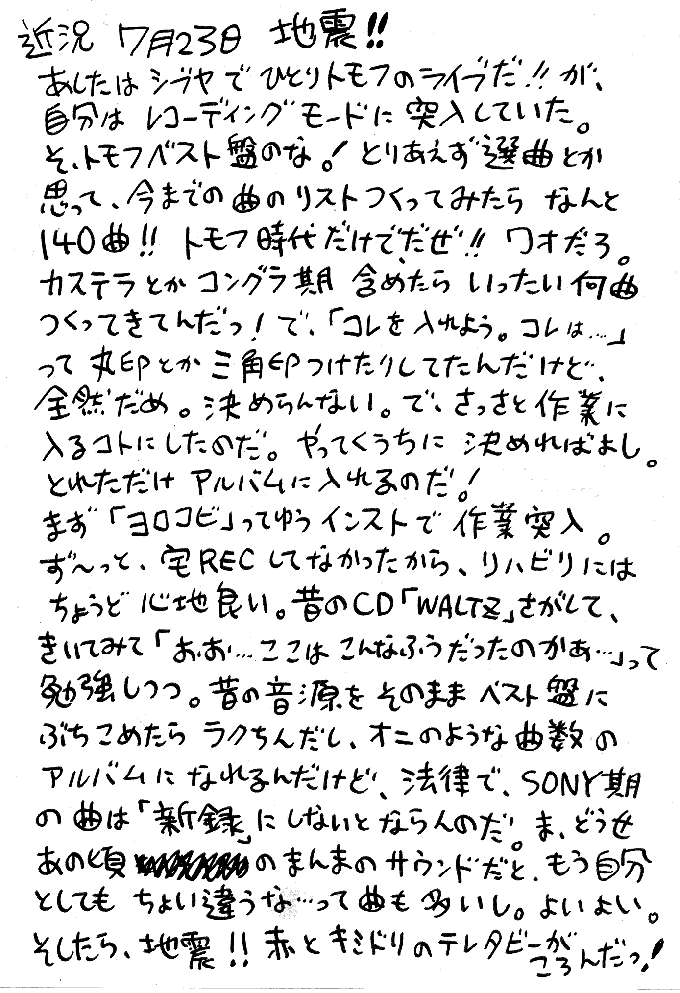 近況 7月23日 地震!!
あしたは シブヤ で ひとりトモフのライブだ!! が、
自分は レコーディングモードに 突入していた。
そ、トモフベスト盤のな。! とりあえず選曲とか
思って、今までの曲のリストつくってみたら なんと
140曲!! トモフ時代だけで、だぜ!! ワオだろ。
カステラとか コングラ期 含めたら いったい何曲
つくってきてんだっ! で、「コレを入れよう。コレは…」
って 丸印とか三角印つけたりしてたんだけど、
全然だめ。決めらんない。で、さっさと作業に
入るコトにしたのだ。やってくうちに 決めればよし。
とれただけ アルバムに入れるのだ!
まず「ヨロコビ」ってゆうインストで 作業突入。
ず〜っと、宅RECしてなかったから、リハビリには
ちょうど 心地良い。昔のCD「WALTZ」さがして、
きいてみて「お、お…ここは こんなふうだったのかぁ…」って
勉強しつつ。昔の音源を そのまま ベスト盤に
ぶちこめたら ラクちんだし、オニのような曲数の
アルバムに なれるんだけど、法律で、SONY期
の曲は「新録」にしないとならんのだ。ま、どうせ
あの頃 のまんまのサウンドだと、もう自分
としても ちょい違うな…って曲も多いし。よいよい。
そしたら、地震!! 赤とキミドリのテレタビーが
ころんだっ!